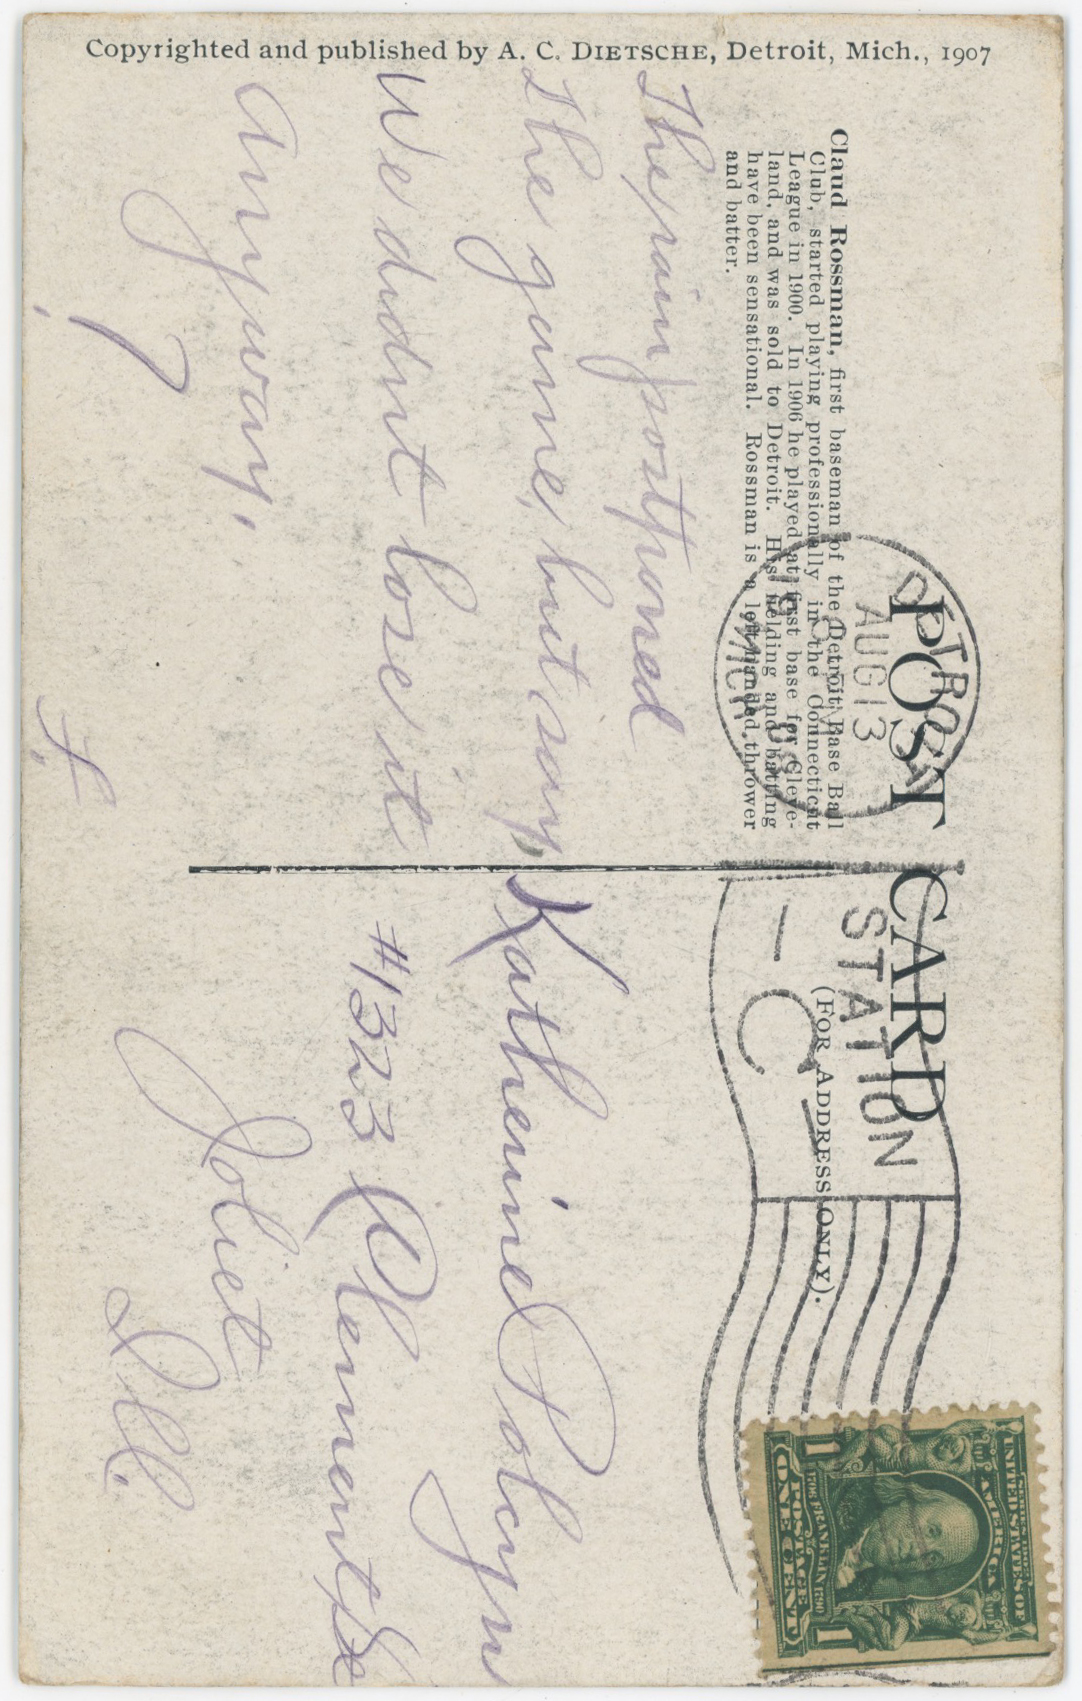 Copyrighted and published by A. C. DIETSCHE, Detroit, Mich., 1907
POST CARD
(FOR ADDRESS ONLY).
Claud Rossman, first baseman of the Detroit Base Ball
Club, started playing professionally in the Connecticut
League in 1900. In 1906 he played at first base for Cleve-
land, and was sold to Detroit. His fielding and batting
have been sensational. Rossman is a left handed thrower
and batter.
DETROIT
AUG 13
MICH.
STATION
C
The rain postponed
The game, but say,
We didnt lose it
Anyway,
!
F.
Katherine
#1323
Joliet
Ill.
SERIES 1902
UNITED STATES OF
AMERICA
1706 FRANKLIN 1790
POSTAGE
1 ONE CENT 1